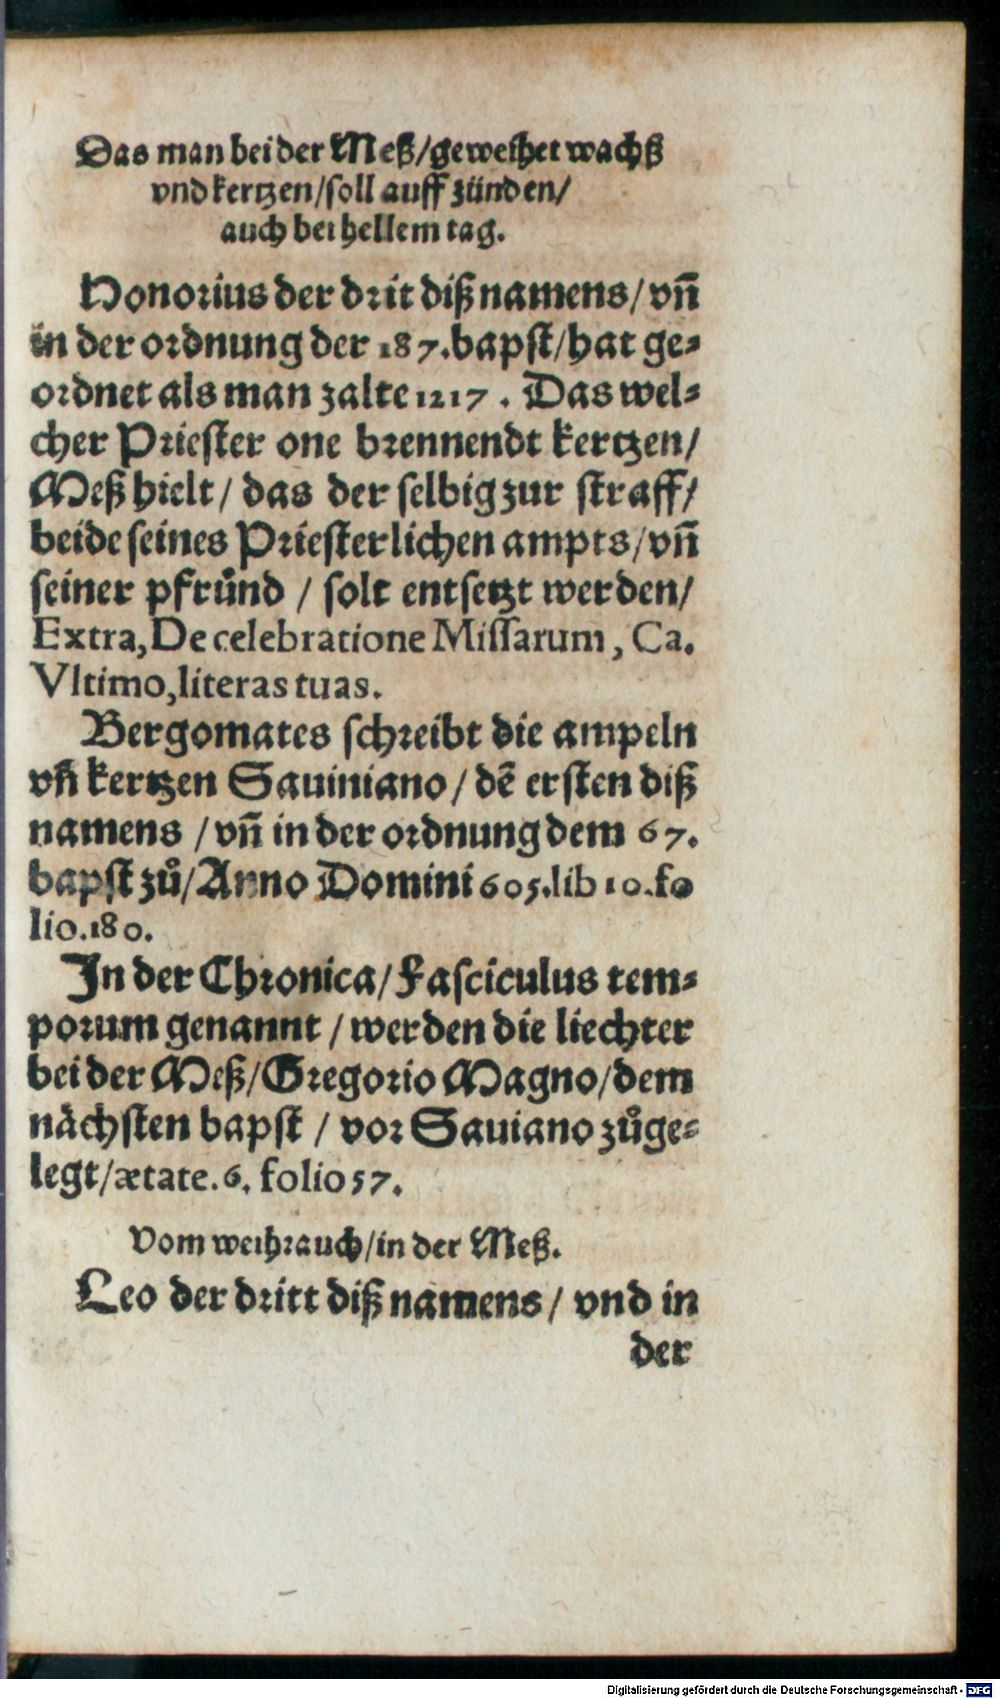 Das man bei der Meß/geweihet wachß
vnd kertzen/soll auff zünden/
auch bei hellem tag.
Honorius der drit diß namens/vn̄
in der ordnung der 187.bapst/hat ge⸗
ordnet als man zalte 1217. Das wel⸗
cher Priester one brennendt kertzen/
Meß hielt/ das der selbig zur straff/
beide seines Priesterlichen ampts/vn̄
seiner pfrůnd / solt entsetzt werden/
Extra, De celebratione Missarum, Ca.
Vltimo, literas tuas.
Bergomates schreibt die ampeln
vn̄ kertzen Sauiniano/ dē ersten diß
namens /vn̄ in der ordnung dem 67.
bapst zů/Anno Domini 605.lib 10.fo
lio.180.
In der Chronica/Fasciculus tem⸗
porum genannt / werden die liechter
bei der Meß/Gregorio Magno/dem
nächsten bapst / vor Sauiano zůge⸗
legt/ætate.6. folio 57.
Vom weihrauch/in der Meß.
Leo der dritt diß namens/ vnd in
der
Digitalisierung gefördert durch die Deutsche Forschungsgemeinschaft - DFG